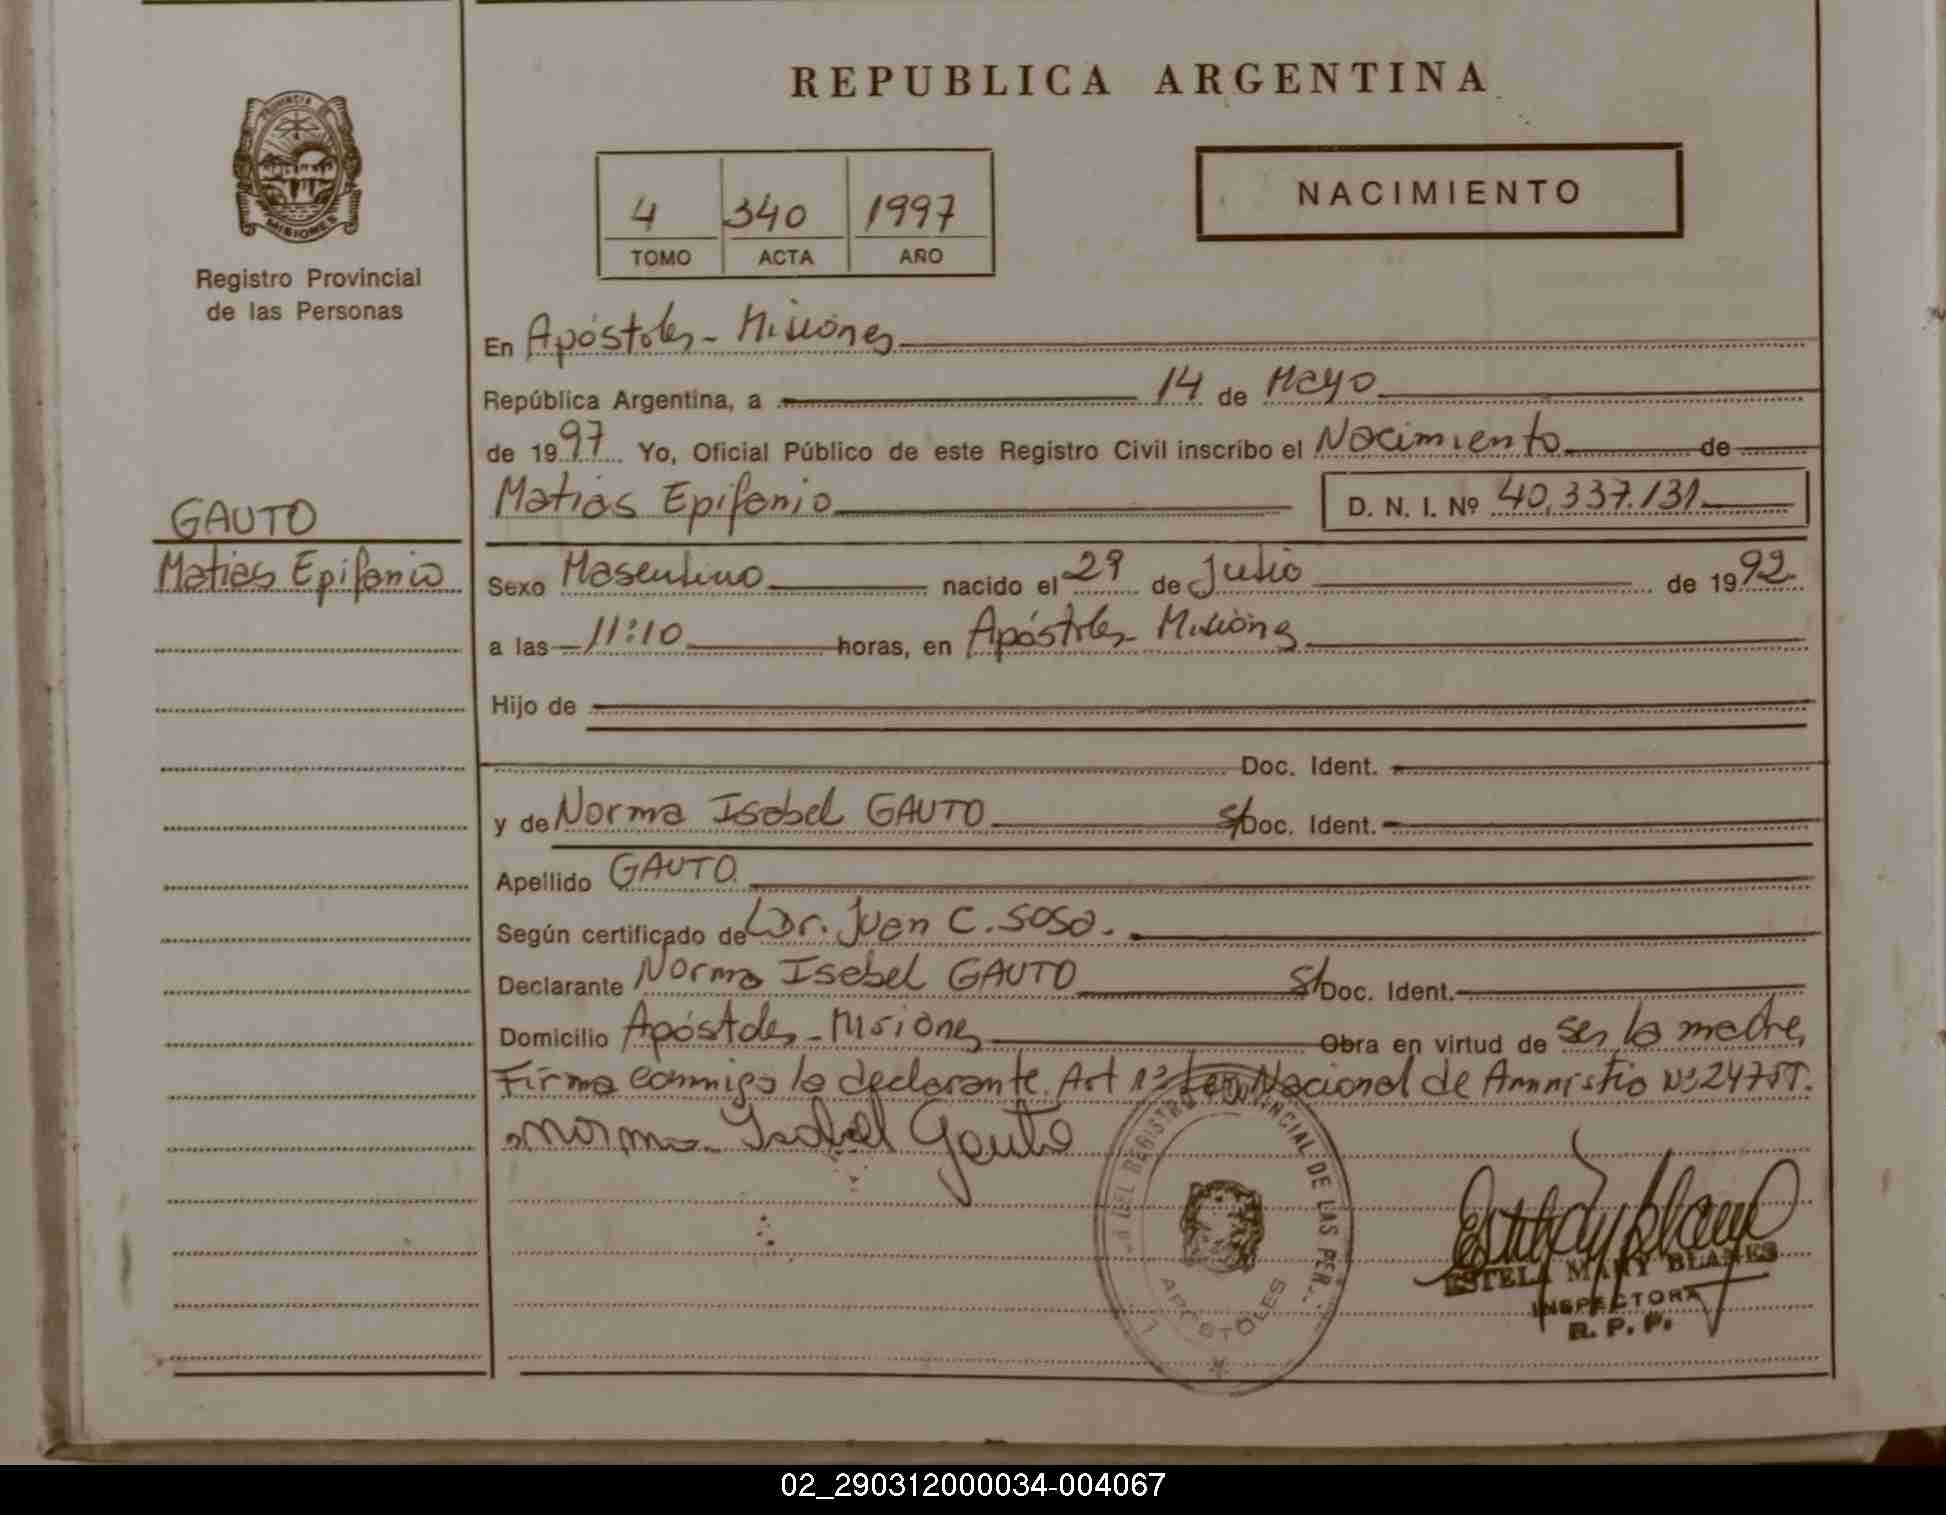 REPUBLICA ARGENTINA
PROVINCIA DE
MISIONES
Registro Provincial
de las Personas
4 340 1997
TOMO ACTA AÑO
NACIMIENTO
En Apóstoles - Misiones
República Argentina, a 14 de Mayo
de 1997 Yo, Oficial Público de este Registro Civil inscribo el Nacimiento de
Matias Epifanio D. N. I. Nº 40.337.131
GAUTO
Matias Epifanio
Sexo Masculino nacido el 29 de Julio de 1992
a las 11:10 horas, en Apóstoles - Misiones
Hijo de
Doc. Ident.
y de Norma Isabel GAUTO s/Doc. Ident.
Apellido GAUTO
Según certificado de Dr. Juan C. SOSA.
Declarante Norma Isabel GAUTO S/Doc. Ident.
Domicilio Apóstoles - Misiones Obra en virtud de ser la madre,
Firma conmigo la declarante. Art 1º Ley Nacional de Amnistia Nº
Norma Isabel Gauto
DEL REGISTRO PROVINCIAL DE LAS PER.
APOSTOLES
ESTELA MARY BLANES
INSPECTORA
R. P. P.
02_290312000034-004067